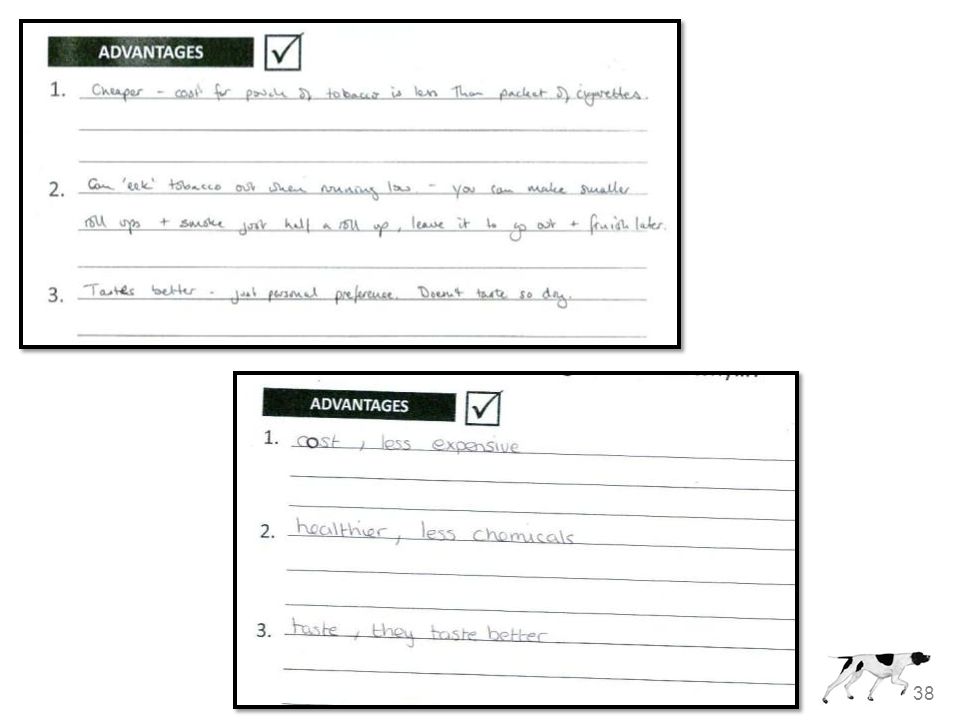 ADVANTAGES
1. Cheaper - cost for pouch of tobacco is less than packet of cigarettes.
2. Can 'eek' tobacco out when running low. - you can make smaller
roll ups + smoke just half a roll up, leave it to go out + finish later.
3. Tastes better - just personal preference. Doesn't taste so dry.
ADVANTAGES
1. cost, less expensive
2. healthier, less chemicals
3. taste, they taste better
38